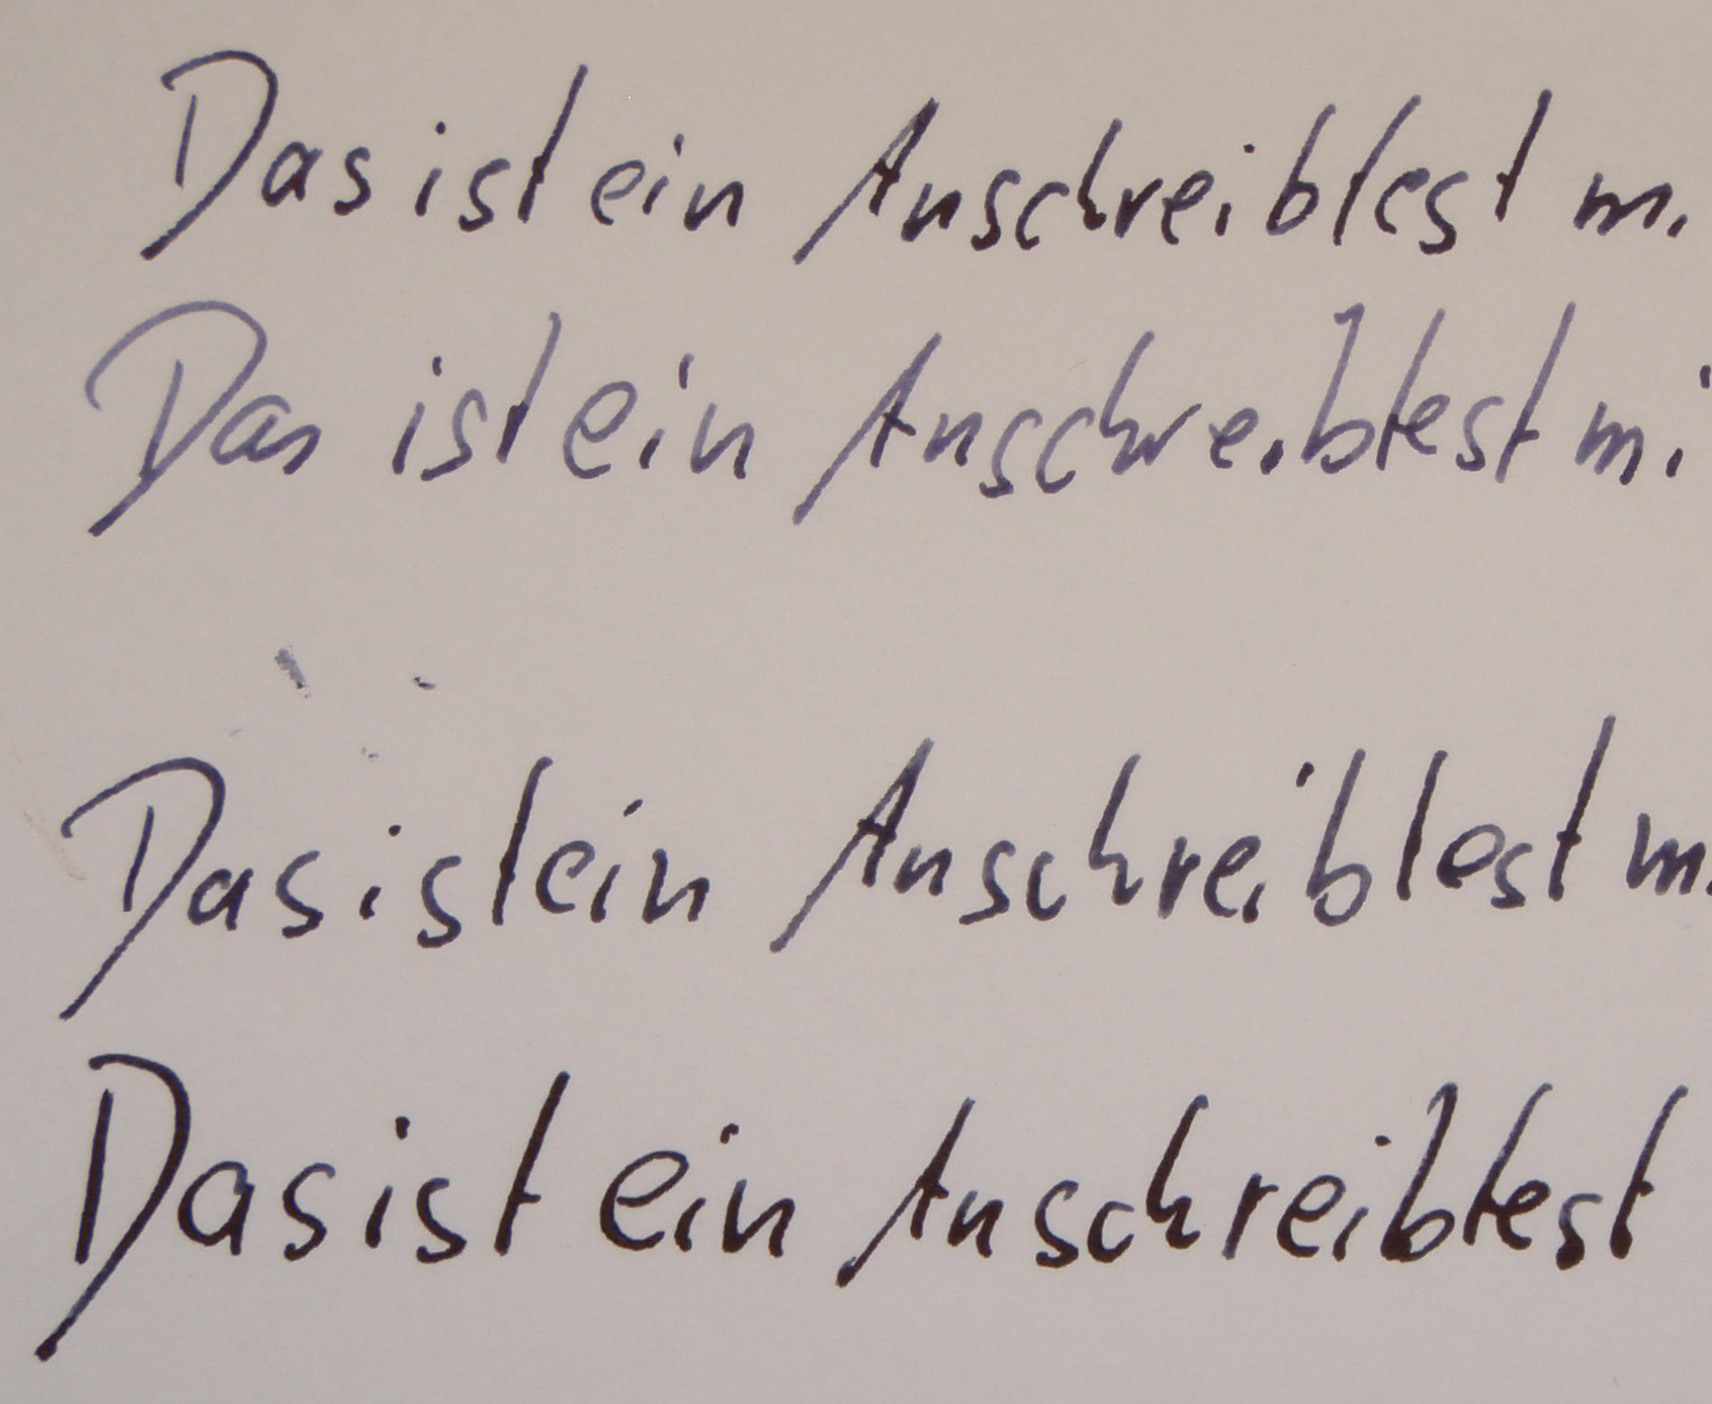 Das ist ein Anschreibtest mi
Das ist ein Anschreibtest mi
Das ist ein Anschreibtest m
Das ist ein Anschreibtest